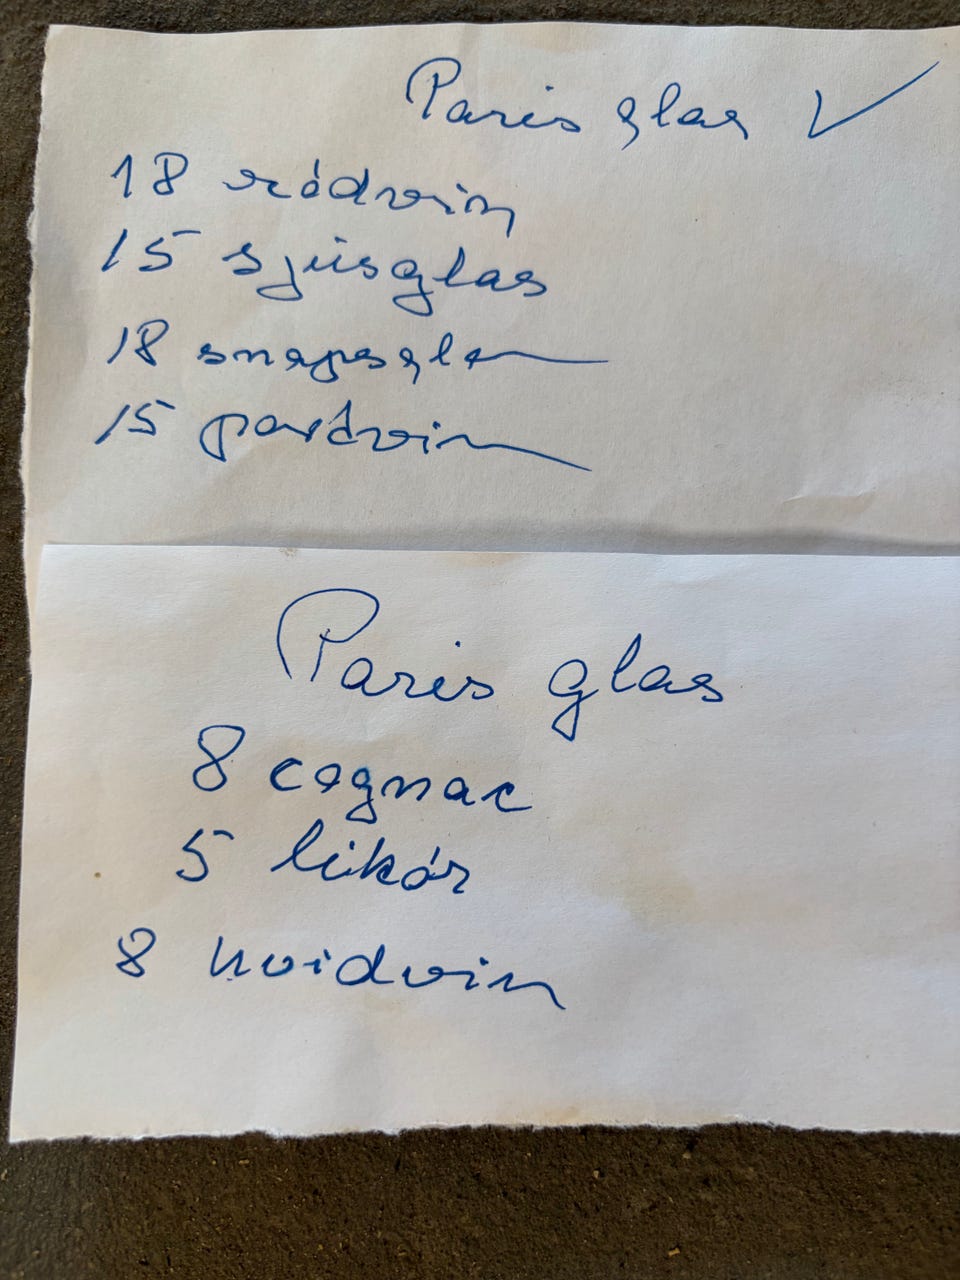 Paris glas ✓
18 ródvin
15 sjusglas
18 snapsgla
15 portvin
Paris glas
8 cognac
5 likór
8 hvidvin